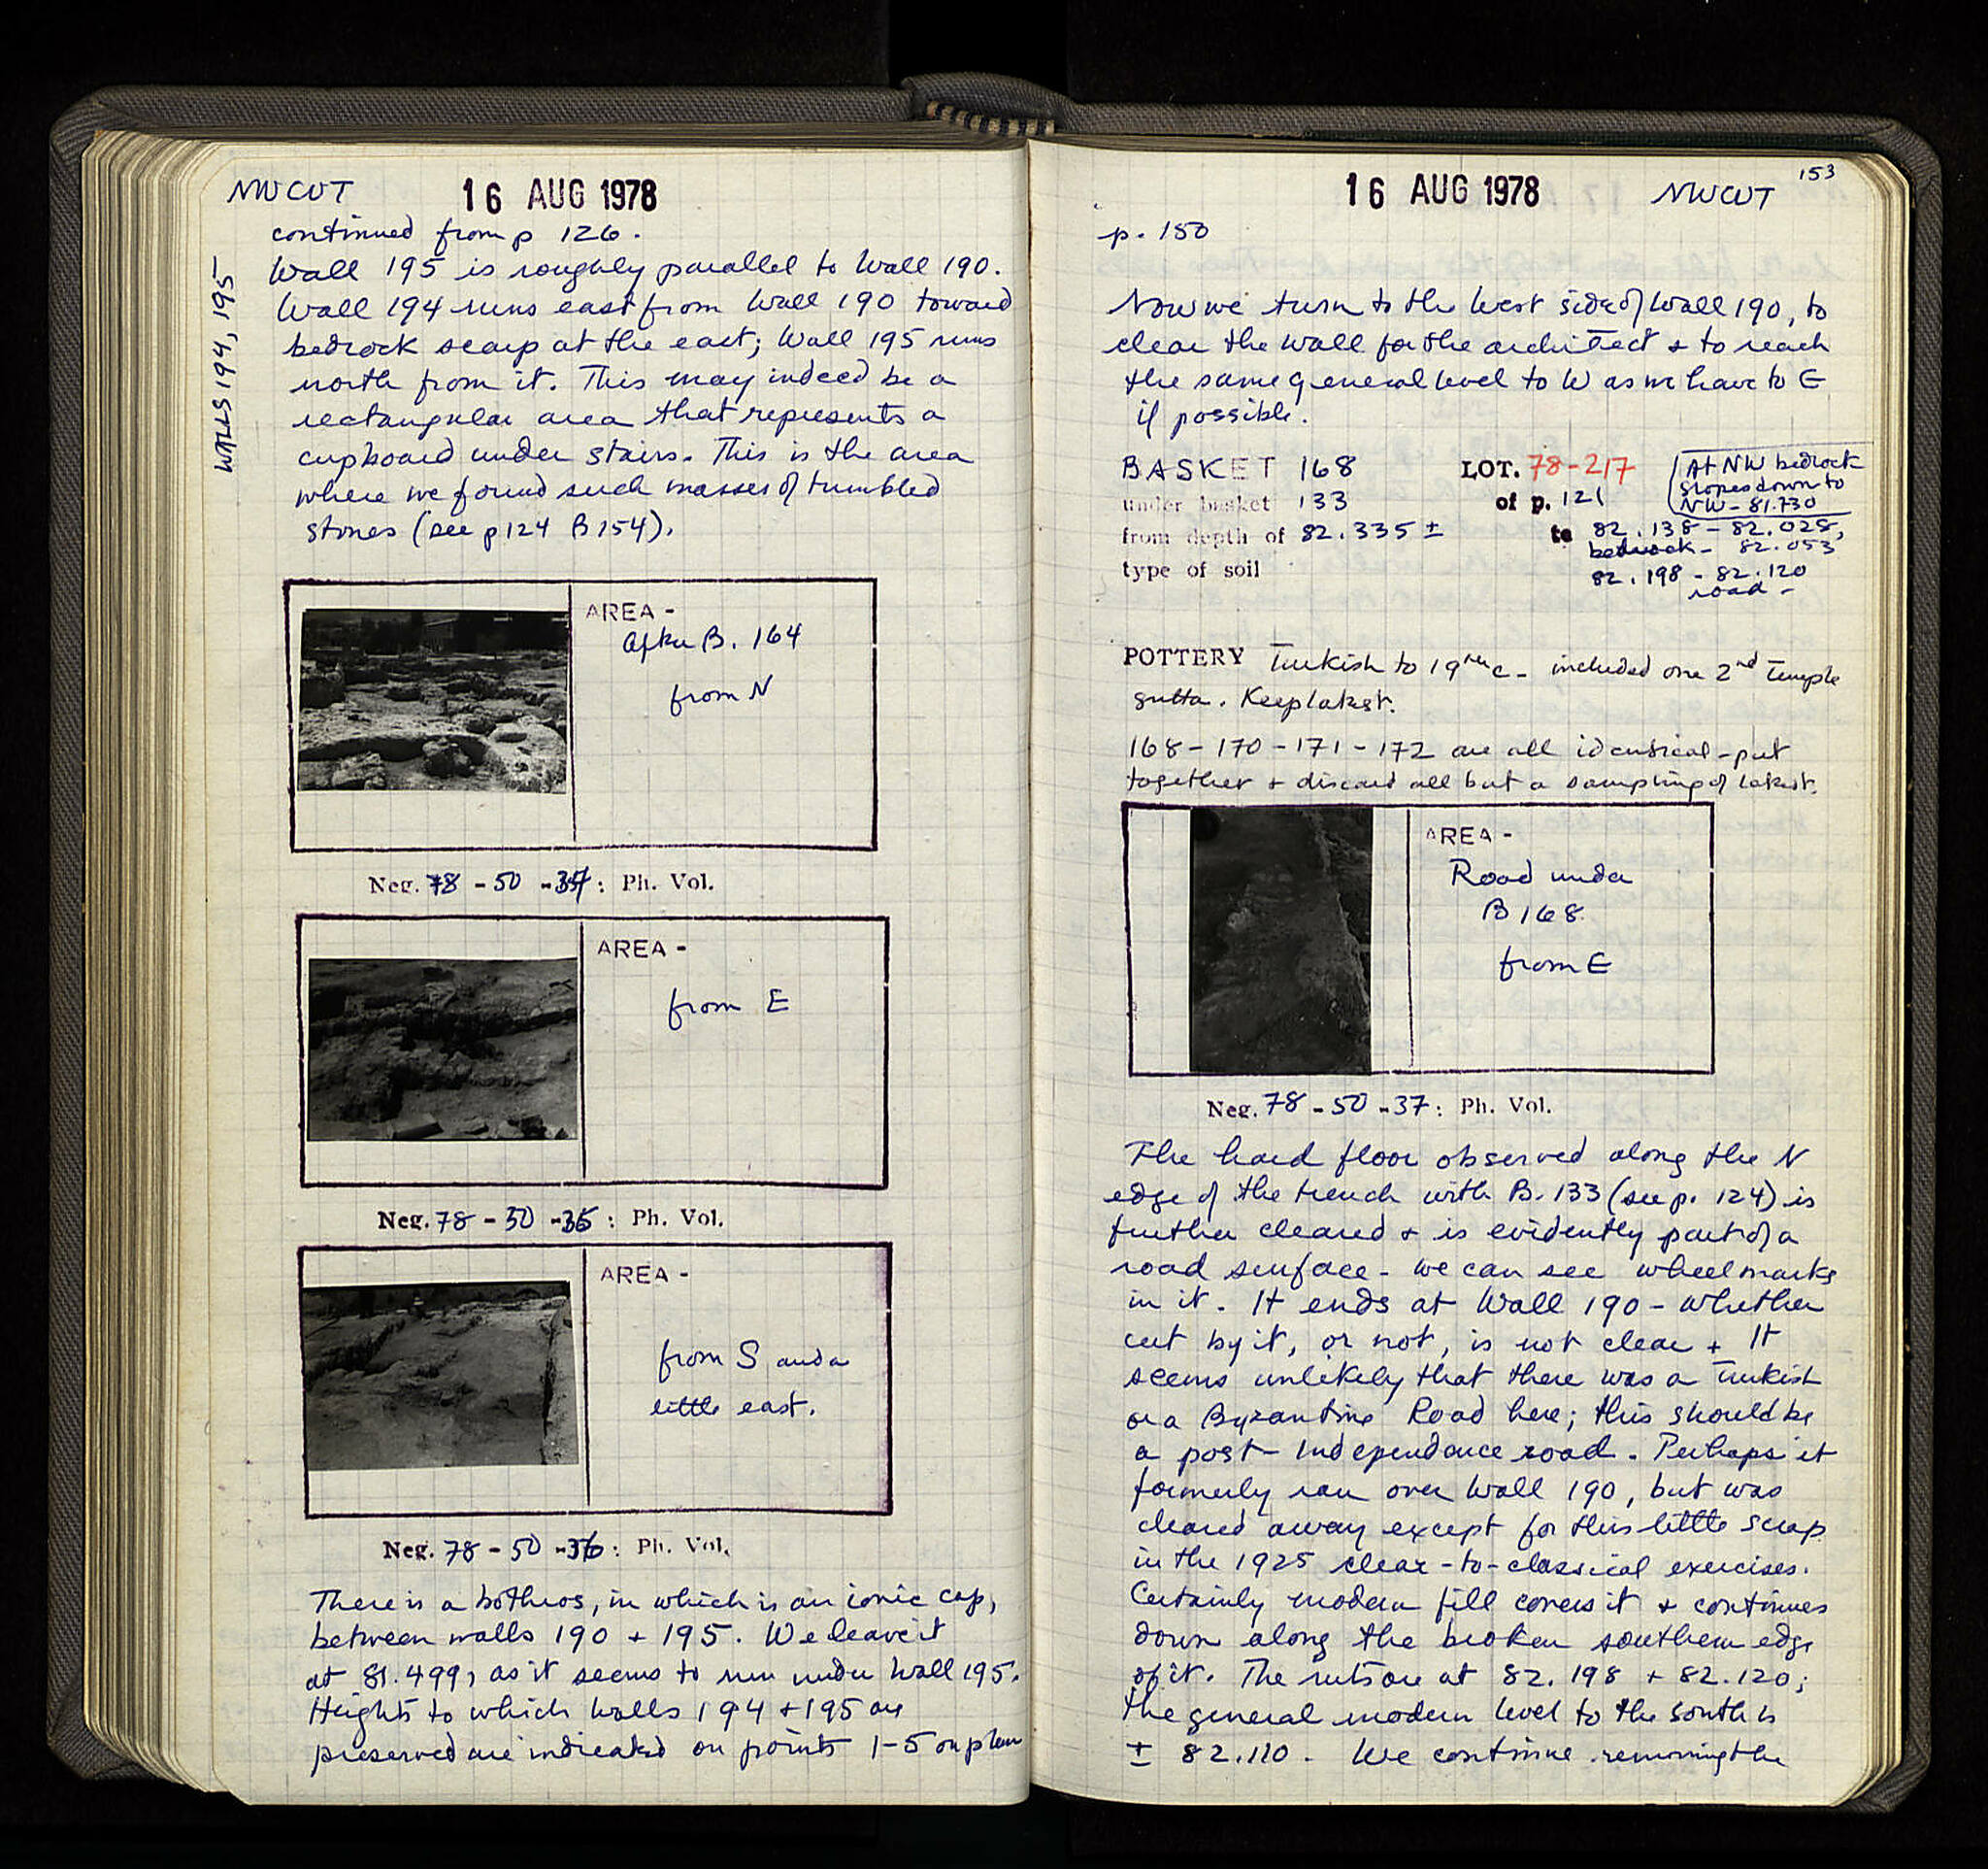 NW CUT 16 AUG 1978
continued from p 126.
WALLS 194, 195
Wall 195 is roughly parallel to Wall 190.
Wall 194 runs east from Wall 190 toward
bedrock scarp at the east; Wall 195 runs
north from it. This may indeed be a
rectangular area that represents a
cupboard under stairs. This is the area
where we found such masses of tumbled
stones (see p 124 B 154).
AREA -
after B. 164
from N
Neg. 78 - 50 - 34 : Ph. Vol.
AREA -
from E
Neg. 78 - 50 - 35 : Ph. Vol.
AREA -
from S and a
little east.
Neg. 78 - 50 - 36 : Ph. Vol.
There is a bothros, in which is an ionic cap,
between walls 190 + 195. We leave it
at 81.499, as it seems to run under Wall 195.
Heights to which walls 194 + 195 are
preserved are indicated on points 1-5 on plan
153
16 AUG 1978 NW CUT
p. 150
Now we turn to the West side of Wall 190, to
clear the wall for the architect + to reach
the same general level to W as we have to E
if possible.
BASKET 168 LOT. 78-217
under basket 133 of p. 121
At NW bedrock
slopes down to
NW - 81.730
from depth of 82.335 ± to 82.138 - 82.028,
bedrock - 82.053
type of soil 82.198 - 82.120
road -
POTTERY Turkish to 19th c - included one 2nd Temple
gutta. Keep latest.
168 - 170 - 171 - 172 are all identical - put
together + discard all but a sampling of latest.
AREA -
Road under
B 168
from E
Neg. 78 - 50 - 37 : Ph. Vol.
The hard floor observed along the N
edge of the trench with B. 133 (see p. 124) is
further cleared + is evidently part of a
road surface - we can see wheelmarks
in it. It ends at Wall 190 - whether
cut by it, or not, is not clear + It
seems unlikely that there was a Turkish
or a Byzantine Road here; this should be
a post-Independence road. Perhaps it
formerly ran over Wall 190, but was
cleared away except for this little scrap
in the 1925 clear-to-classical exercises.
Certainly modern fill covers it + continues
down along the broken southern edge
of it. The ruts are at 82.198 + 82.120;
the general modern level to the south is
± 82.110. We continue removing the